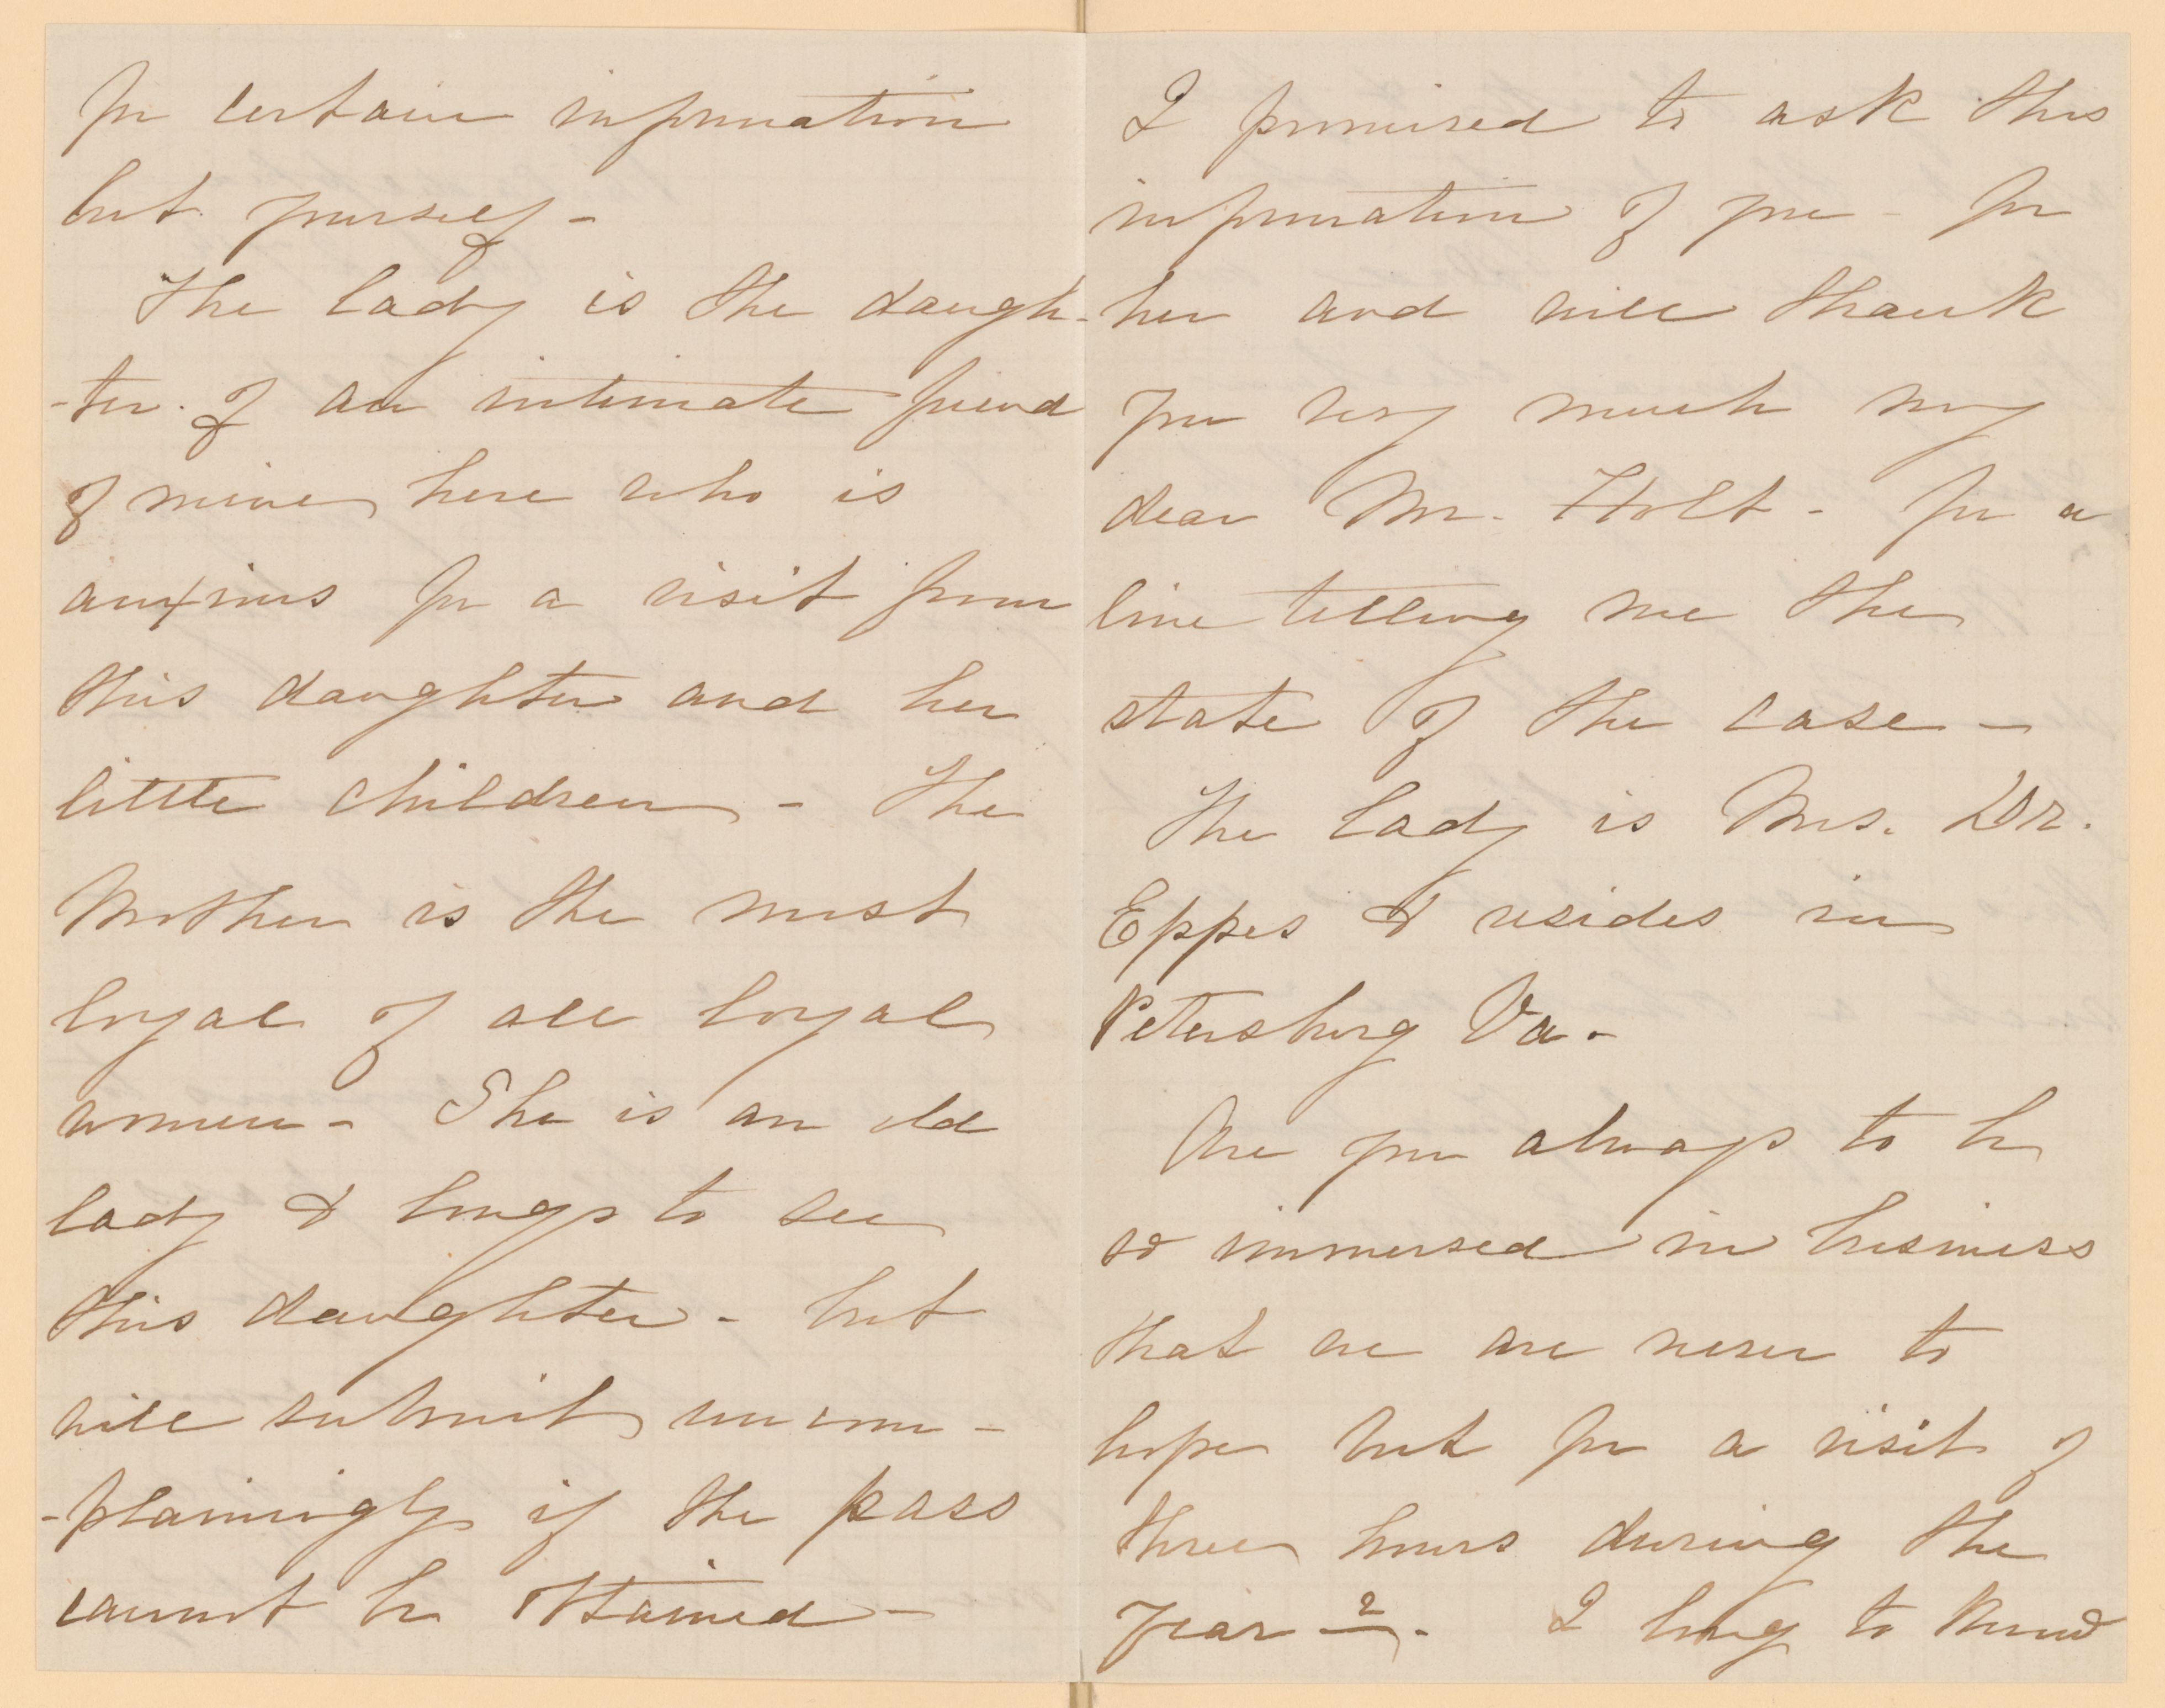 for certain information
but yourself -
The lady is the daugh-
-ter. of an intimate friend
of mine here who is
anxious for a visit from
this daughter and her
little children - The
Mother is the most
loyal of all loyal
women - She is an old
lady & longs to see
this daughter - but
will submit uncom-
-plainingly if the pass
cannot be obtained -
I promised to ask this
information of you - for
her and will thank
you very much my
dear Mr. Holt - for a
line telling me the
state of the case -
The lady is Mrs. Dr.
Eppes & resides in
Petersburg Va -
Are you always to be
so immersed in business
that we are never to
hope but for a visit of
three hours during the
year - ? . I long to know